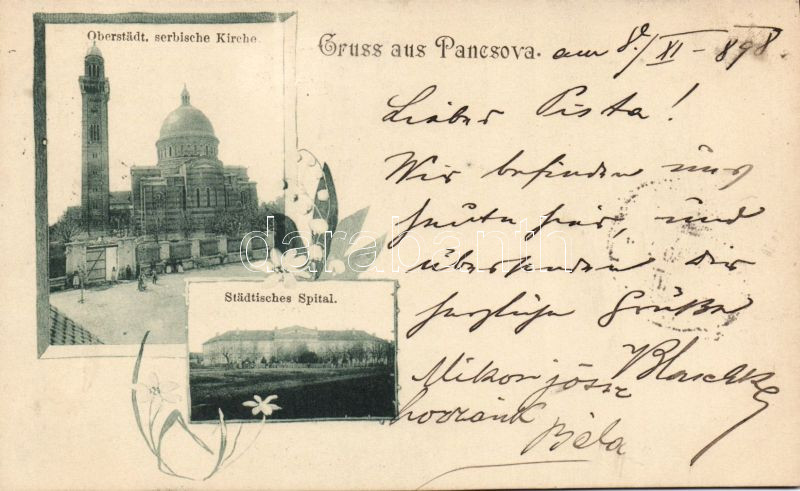 Oberstädt. serbische Kirche.
Gruss aus Pancsova. am 8/XI - 898.
Lieber Pista!
Wir befinden uns
heute hier, und
übersenden Dir
herzliche Grüße
Mikor jössz Blaschke
hozzánk
Béla
Städtisches Spital.
darabanth